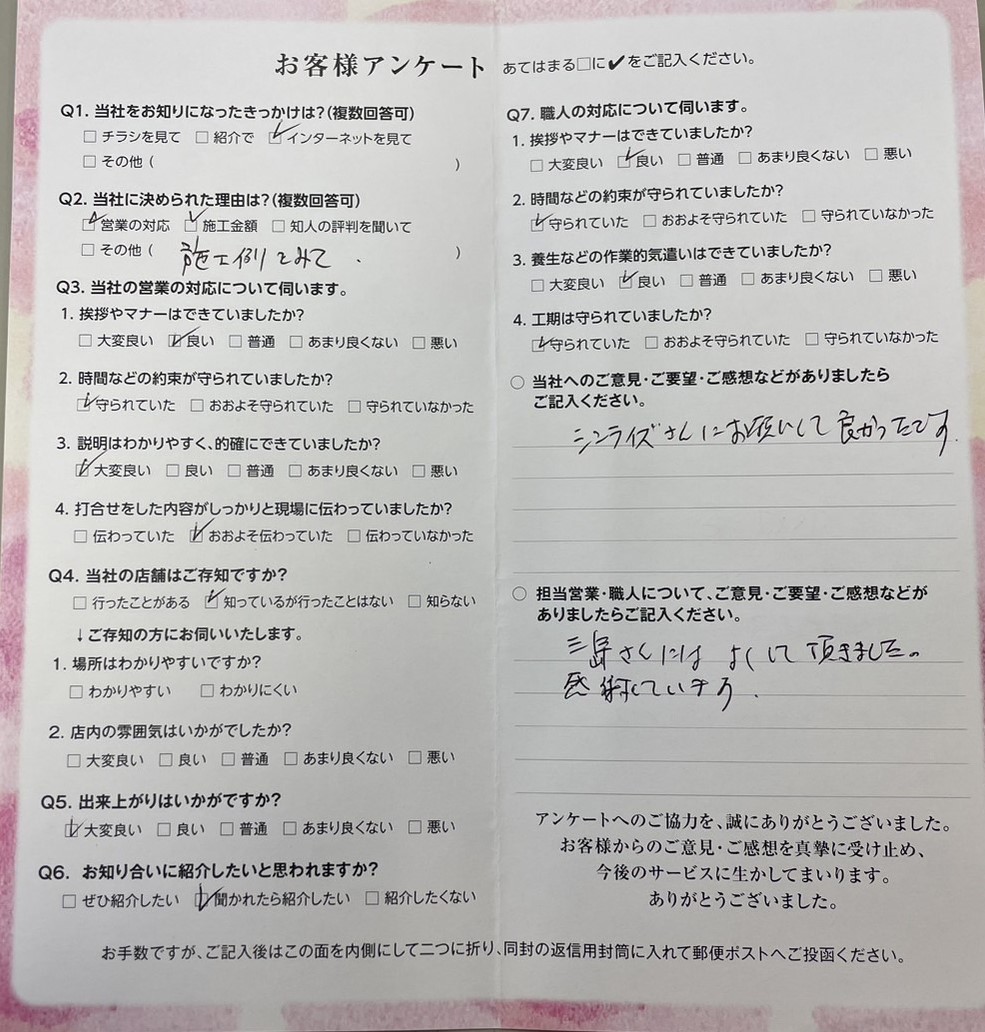 お客様アンケート あてはまる□に✔をご記入ください。
Q1. 当社をお知りになったきっかけは?(複数回答可)
□ チラシを見て □ 紹介で ☑ インターネットを見て
□ その他 ( )
Q2. 当社に決められた理由は?(複数回答可)
☑ 営業の対応 ☑ 施工金額 □ 知人の評判を聞いて
□ その他 ( 施工例をみて. )
Q3. 当社の営業の対応について伺います。
1. 挨拶やマナーはできていましたか?
□ 大変良い ☑ 良い □ 普通 □ あまり良くない □ 悪い
2. 時間などの約束が守られていましたか?
☑ 守られていた □ おおよそ守られていた □ 守られていなかった
3. 説明はわかりやすく、的確にできていましたか?
☑ 大変良い □ 良い □ 普通 □ あまり良くない □ 悪い
4. 打合せをした内容がしっかりと現場に伝わっていましたか?
□ 伝わっていた ☑ おおよそ伝わっていた □ 伝わっていなかった
Q4. 当社の店舗はご存知ですか?
□ 行ったことがある ☑ 知っているが行ったことはない □ 知らない
↓ご存知の方にお伺いいたします。
1. 場所はわかりやすいですか?
□ わかりやすい □ わかりにくい
2. 店内の雰囲気はいかがでしたか?
□ 大変良い □ 良い □ 普通 □ あまり良くない □ 悪い
Q5. 出来上がりはいかがですか?
☑ 大変良い □ 良い □ 普通 □ あまり良くない □ 悪い
Q6. お知り合いに紹介したいと思われますか?
□ ぜひ紹介したい ☑ 聞かれたら紹介したい □ 紹介したくない
Q7. 職人の対応について伺います。
1. 挨拶やマナーはできていましたか?
□ 大変良い ☑ 良い □ 普通 □ あまり良くない □ 悪い
2. 時間などの約束が守られていましたか?
☑ 守られていた □ おおよそ守られていた □ 守られていなかった
3. 養生などの作業的気遣いはできていましたか?
□ 大変良い ☑ 良い □ 普通 □ あまり良くない □ 悪い
4. 工期は守られていましたか?
☑ 守られていた □ おおよそ守られていた □ 守られていなかった
○ 当社へのご意見・ご要望・ご感想などがありましたら
ご記入ください。
シンライズさんにお願いして良かったです.
○ 担当営業・職人について、ご意見・ご要望・ご感想などが
ありましたらご記入ください。
三島さんにはよくして頂きました。
感謝しています.
アンケートへのご協力を、誠にありがとうございました。
お客様からのご意見・ご感想を真摯に受け止め、
今後のサービスに生かしてまいります。
ありがとうございました。
お手数ですが、ご記入後はこの面を内側にして二つに折り、同封の返信用封筒に入れて郵便ポストへご投函ください。